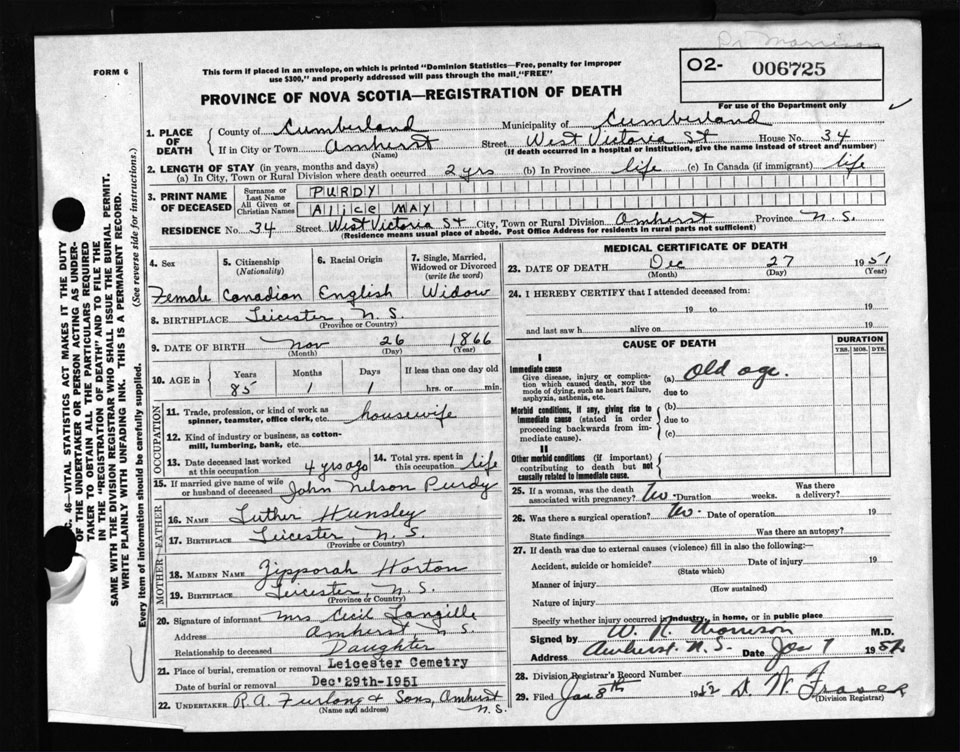 Dr Morrison
FORM 6
This form if placed in an envelope, on which is printed "Dominion Statistics—Free, penalty for improper
use $300," and properly addressed will pass through the mail "FREE"
O2- 006725
For use of the Department only
PROVINCE OF NOVA SCOTIA—REGISTRATION OF DEATH
1. PLACE OF DEATH
County of Cumberland Municipality of Cumberland
If in City or Town Amherst Street West Victoria St House No. 34
(Name) (If death occurred in a hospital or institution, give the name instead of street and number)
2. LENGTH OF STAY (in years, months and days)
(a) In City, Town or Rural Division where death occurred 2 yrs (b) In Province life (c) In Canada (if immigrant) life
3. PRINT NAME OF DECEASED
Surname or Last Name PURDY
All Given or Christian Names Alice MAY
RESIDENCE No. 34 Street West Victoria St City, Town or Rural Division Amherst Province N.S.
(Residence means usual place of abode. Post Office Address for residents in rural parts not sufficient)
4. Sex 5. Citizenship (Nationality) 6. Racial Origin 7. Single, Married, Widowed or Divorced (write the word)
Female Canadian English Widow
8. BIRTHPLACE Leicester, N.S.
(Province or Country)
9. DATE OF BIRTH Nov 26 1866
(Month) (Day) (Year)
10. AGE in Years Months Days If less than one day old
85 1 1 hrs. or min.
OCCUPATION
11. Trade, profession, or kind of work as spinner, teamster, office clerk, etc. housewife
12. Kind of industry or business, as cotton-mill, lumbering, bank, etc.
13. Date deceased last worked at this occupation 4 yrs ago 14. Total yrs. spent in this occupation life
15. If married give name of wife or husband of deceased John Nelson Purdy
FATHER
16. NAME Luther Hunsley
17. BIRTHPLACE Leicester, N.S.
(Province or Country)
MOTHER
18. MAIDEN NAME Zipporah Horton
19. BIRTHPLACE Leicester N.S.
(Province or Country)
20. Signature of informant Mrs Cecil Langille
Address Amherst N.S.
Relationship to deceased Daughter
21. Place of burial, cremation or removal Leicester Cemetry
Date of burial or removal Dec' 29th-1951
22. UNDERTAKER R.A. Furlong & Sons, Amherst N.S.
(Name and address)
MEDICAL CERTIFICATE OF DEATH
23. DATE OF DEATH Dec 27 1951
(Month) (Day) (Year)
24. I HEREBY CERTIFY that I attended deceased from:
19 to 19
and last saw h alive on 19
CAUSE OF DEATH
DURATION
YRS. MOS. DYS.
I
Immediate cause
Give disease, injury or complication which caused death, NOT the mode of dying, such as heart failure, asphyxia, asthenia, etc.
(a) Old age.
due to
Morbid conditions, if any, giving rise to immediate cause (stated in order proceeding backwards from immediate cause).
(b)
due to
(c)
II
Other morbid conditions (if important) contributing to death but not causally related to immediate cause.
25. If a woman, was the death associated with pregnancy? No Duration weeks. Was there a delivery?
26. Was there a surgical operation? No. Date of operation 19
State findings Was there an autopsy?
27. If death was due to external causes (violence) fill in also the following:—
Accident, suicide or homicide? Date of injury 19
(State which)
Manner of injury
(How sustained)
Nature of injury
Specify whether injury occurred in industry, in home, or in public place
Signed by M.D.
Address Amherst N.S. Date Jan 7 1952
28. Division Registrar's Record Number
29. Filed Jan 8th 1952 D. W. Fraser
(Division Registrar)
C. 46—VITAL STATISTICS ACT MAKES IT THE DUTY
OF THE UNDERTAKER OR PERSON ACTING AS UNDER-
TAKER TO OBTAIN ALL THE PARTICULARS REQUIRED
IN THE "REGISTRATION OF DEATH" AND TO FILE THE
SAME WITH THE DIVISION REGISTRAR WHO SHALL ISSUE THE BURIAL PERMIT.
WRITE PLAINLY WITH UNFADING INK. THIS IS A PERMANENT RECORD.
Every item of information should be carefully supplied. (See reverse side for instructions.)